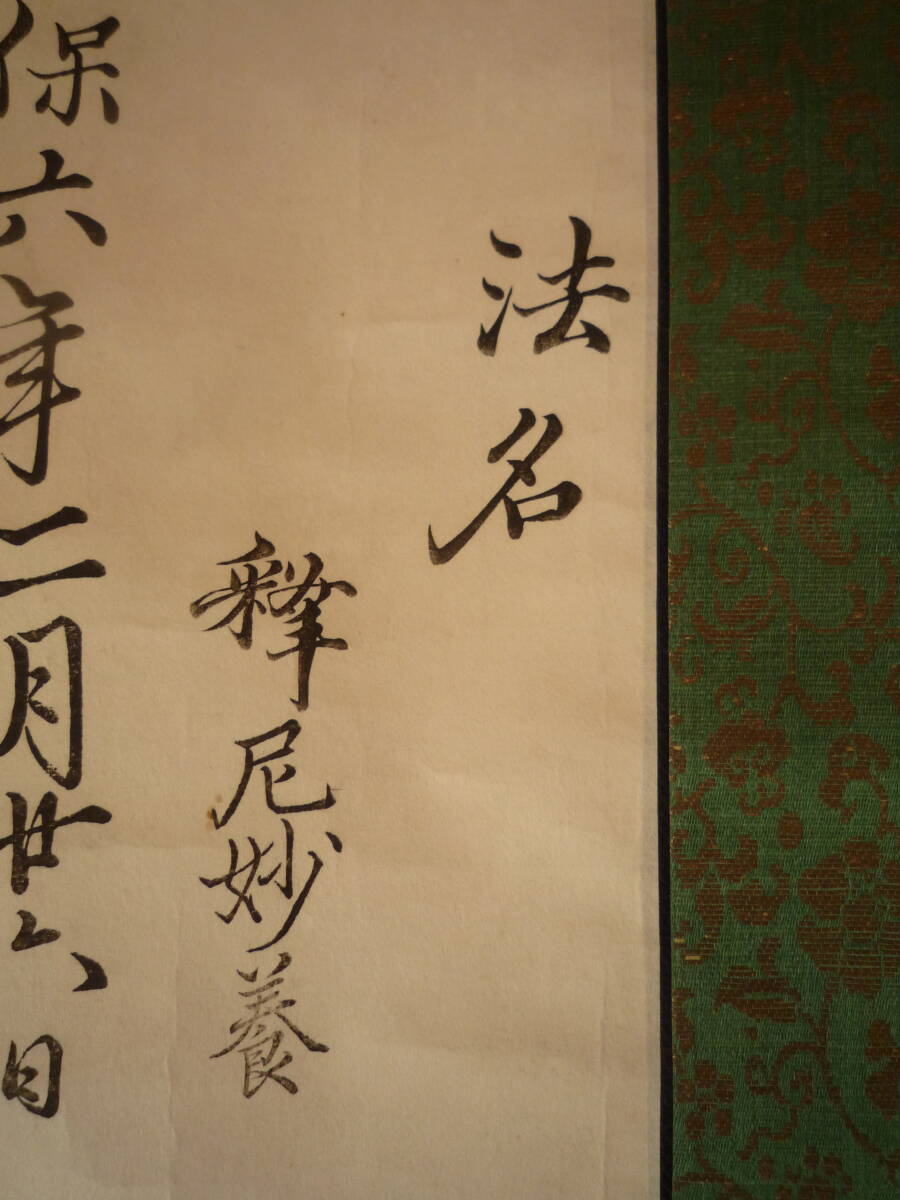 法名
釋尼妙養
保六年二月廿六日